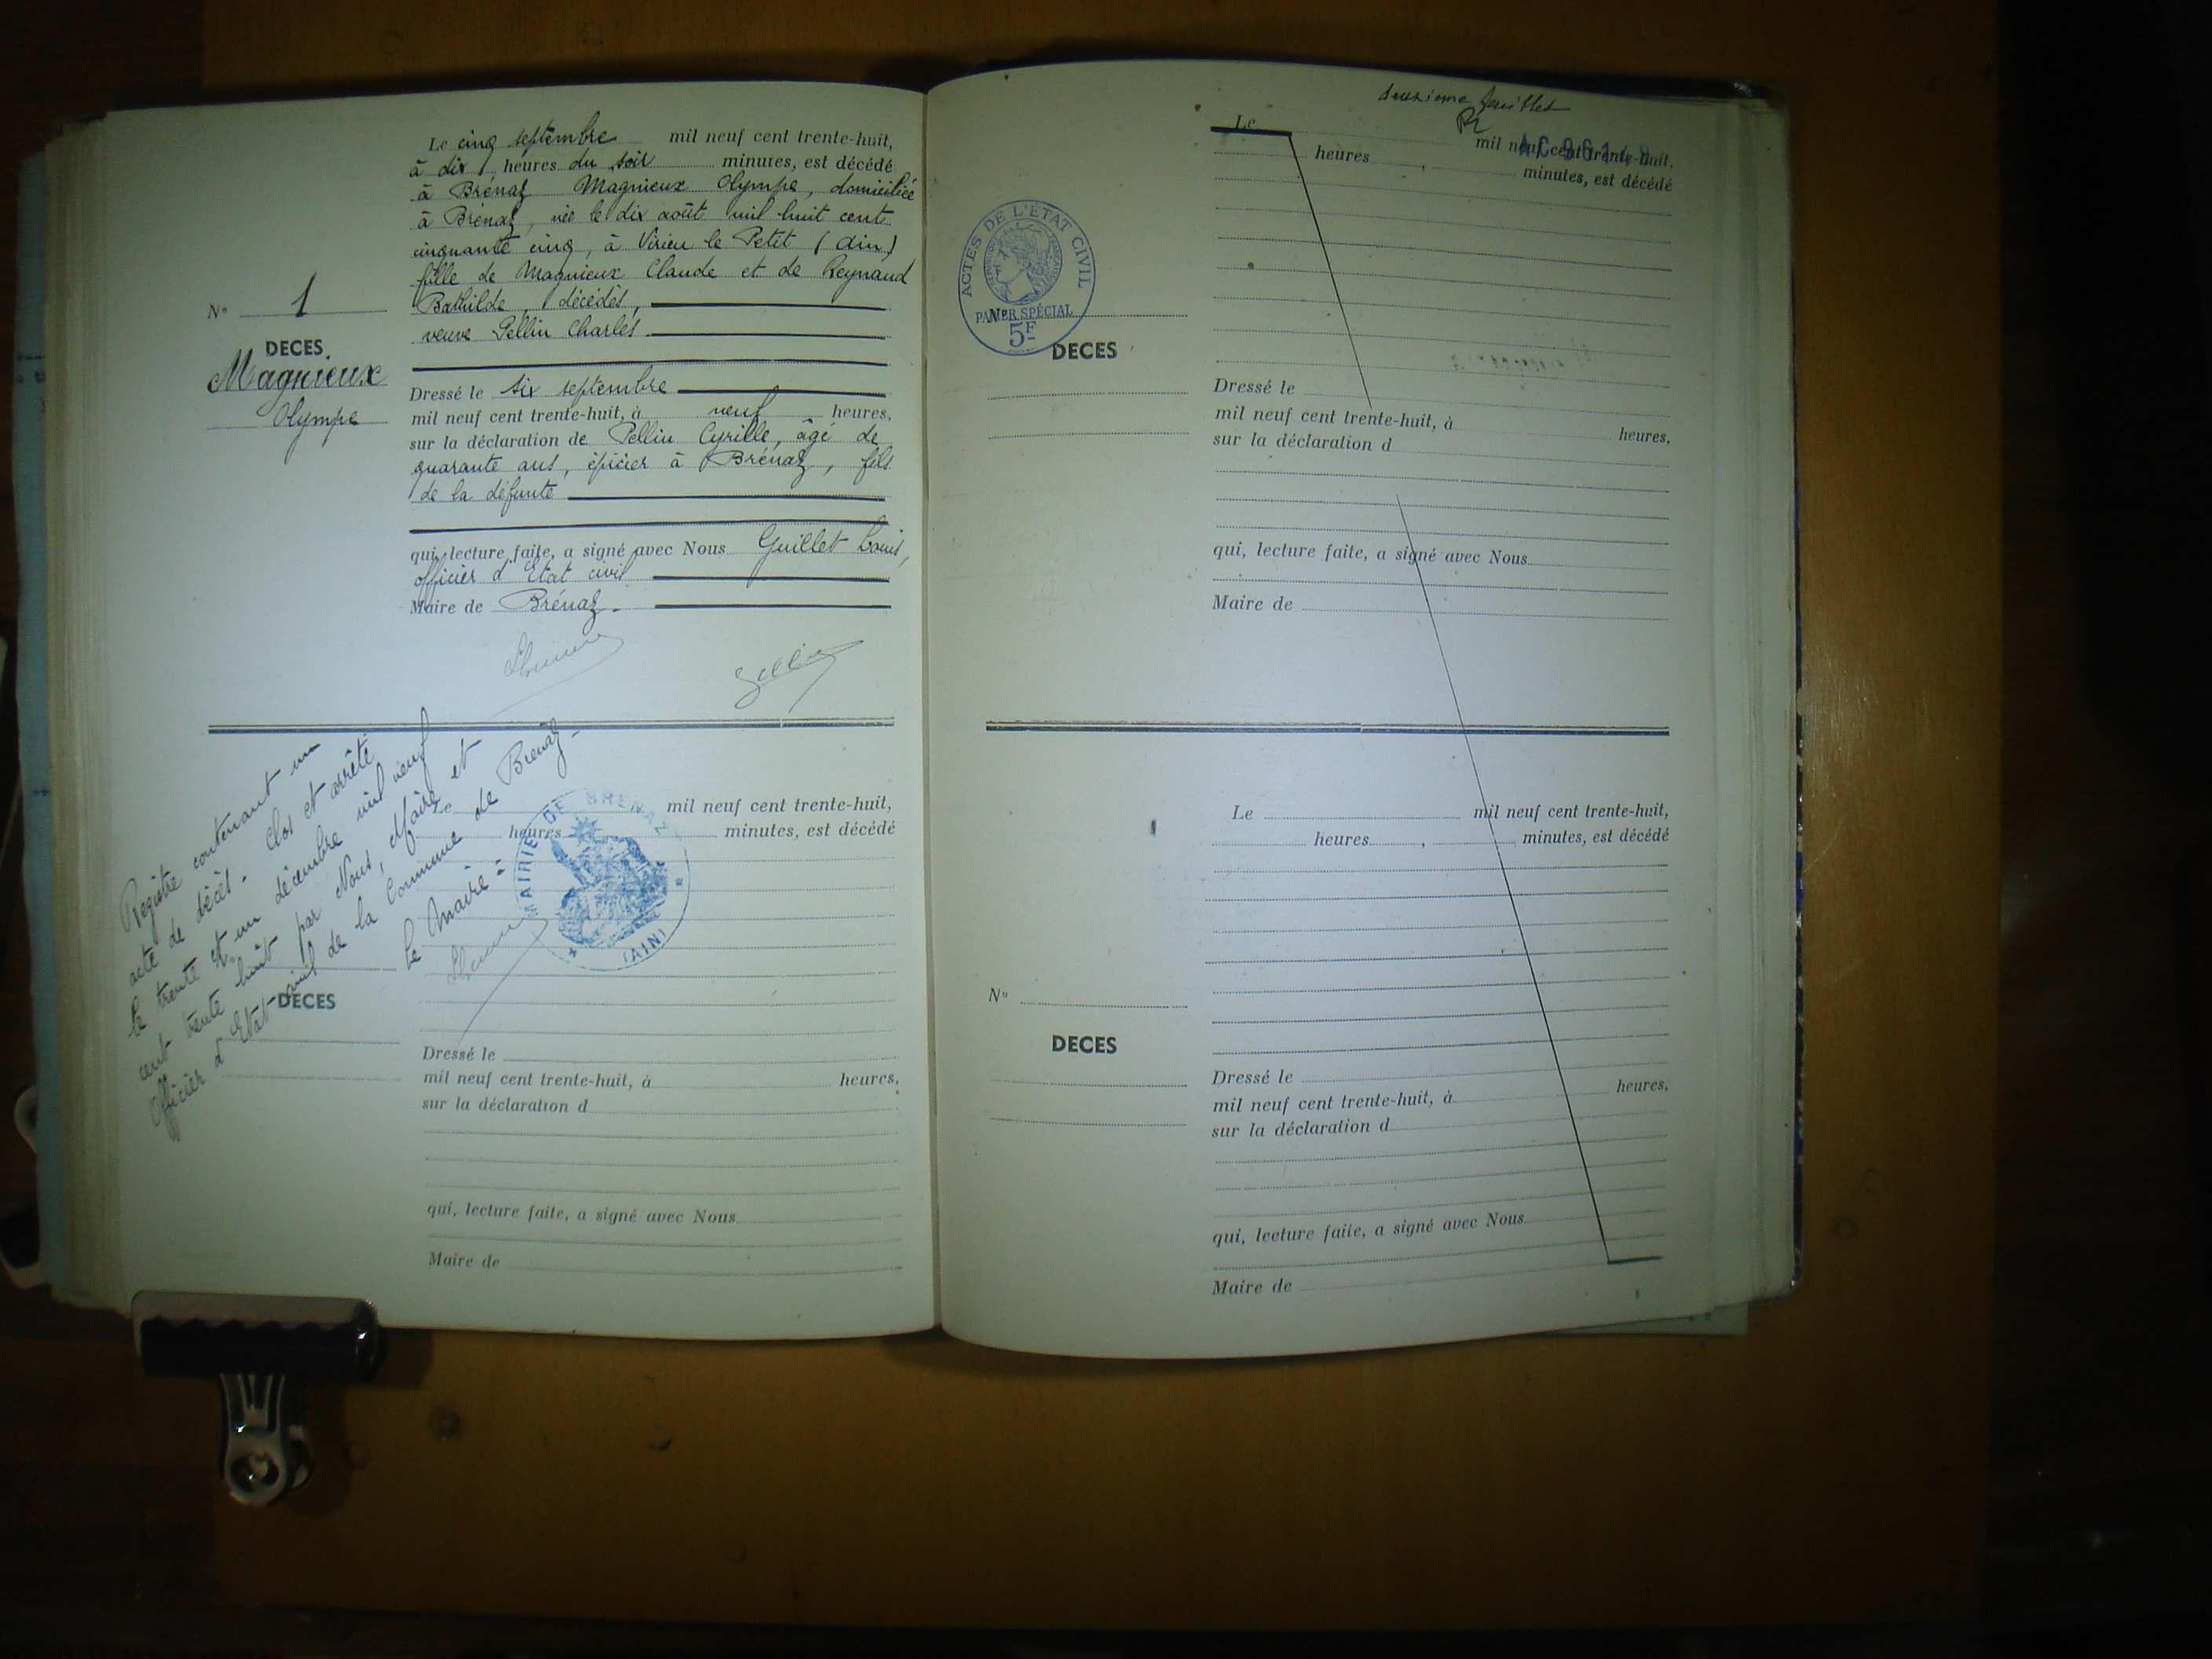 Le cinq septembre mil neuf cent trente-huit,
à dix heures du soir minutes, est décédé
à Brénaz Magnieux Olympe, domiciliée
à Brénaz, née le dix août mil huit cent
cinquante cinq, à Virieu le Petit (Ain)
fille de Magnieux Claude et de Reynaud
Bathilde, décédés,
veuve Pellin Charles
N° 1
DECES
Magnieux
Olympe
Dressé le six septembre
mil neuf cent trente-huit, à neuf heures,
sur la déclaration de Pellin Cyrille, âgé de
quarante ans, épicier à Brénaz, fils
de la défunte
qui, lecture faite, a signé avec Nous Guillet Louis,
officier d'Etat civil
Maire de Brénaz.
Registre contenant un
acte de décès. Clos et arrêté
le trente et un décembre mil neuf
cent trente huit par Nous, Maire et
Officier d'Etat civil de la Commune de Brénaz
Le Maire :
MAIRIE DE BRENAZ
(AIN)
Le mil neuf cent trente-huit,
heures minutes, est décédé
N°
DECES
Dressé le
mil neuf cent trente-huit, à heures,
sur la déclaration d
qui, lecture faite, a signé avec Nous
Maire de
deuxième feuillet
Le mil neuf cent trente-huit,
heures , minutes, est décédé
ACTES DE L'ÉTAT CIVIL
PAPIER SPÉCIAL
5F
N°
DECES
Dressé le
mil neuf cent trente-huit, à heures,
sur la déclaration d
qui, lecture faite, a signé avec Nous
Maire de
Le mil neuf cent trente-huit,
heures , minutes, est décédé
N°
DECES
Dressé le
mil neuf cent trente-huit, à heures,
sur la déclaration d
qui, lecture faite, a signé avec Nous
Maire de